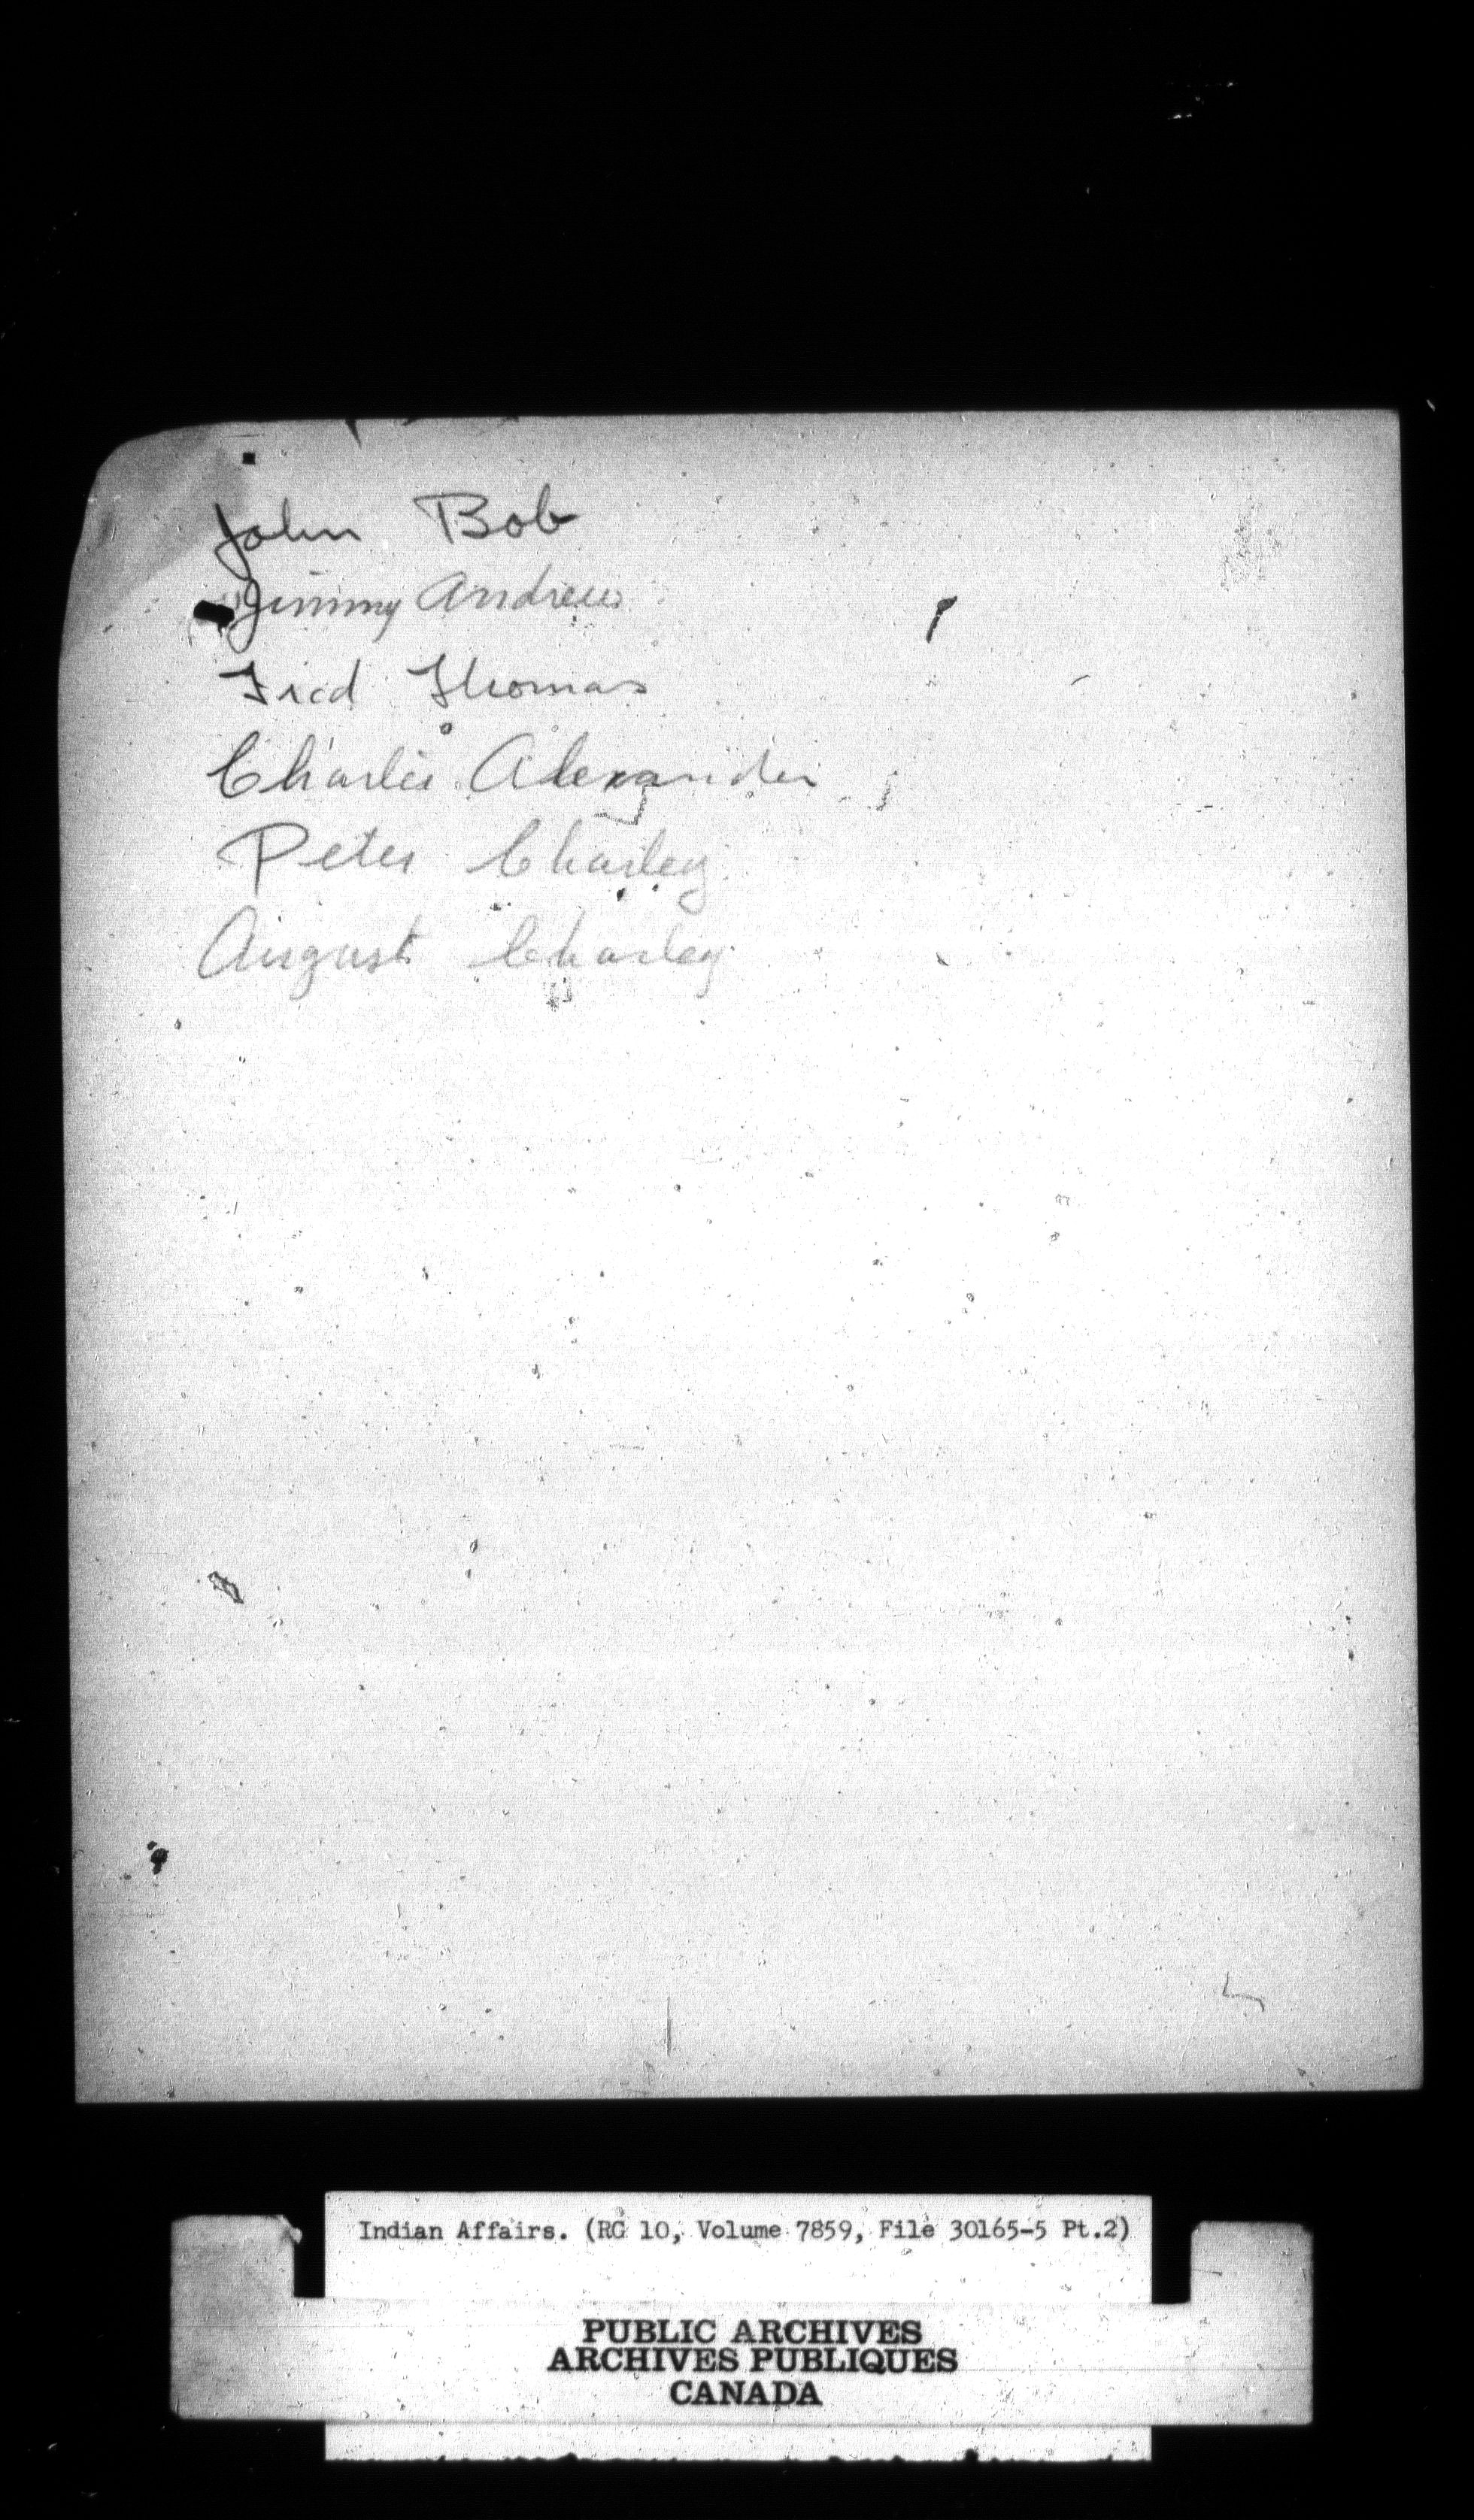 John Bob
Jimmy Andrew
Fred Thomas
Charlie Alexander
Peter Charley
August Charley
Indian Affairs. (RG 10, Volume 7859, File 30165-5 Pt.2)
PUBLIC ARCHIVES
ARCHIVES PUBLIQUES
CANADA